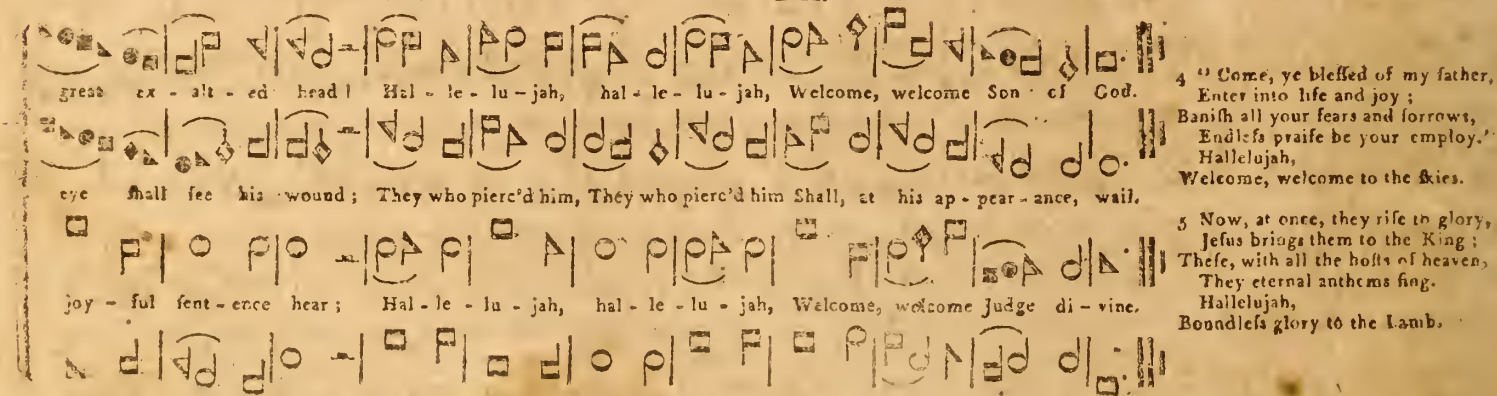 great ex - alt - ed head! Hal - le - lu - jah, hal - le - lu - jah, Welcome, welcome Son of God.
eye shall ſee his wound; They who pierc'd him, They who pierc'd him Shall, at his ap - pear - ance, wail.
joy - ful ſent - ence hear; Hal - le - lu - jah, hal - le - lu - jah, Welcome, welcome Judge di - vine.
4 "Come, ye bleſſed of my father,
Enter into life and joy;
Baniſh all your fears and ſorrows,
Endleſs praiſe be your employ."
Hallelujah,
Welcome, welcome to the ſkies.
5 Now, at once, they riſe to glory,
Jeſus brings them to the King;
Theſe, with all the hoſts of heaven,
They eternal anthems ſing.
Hallelujah,
Boundleſs glory to the Lamb.